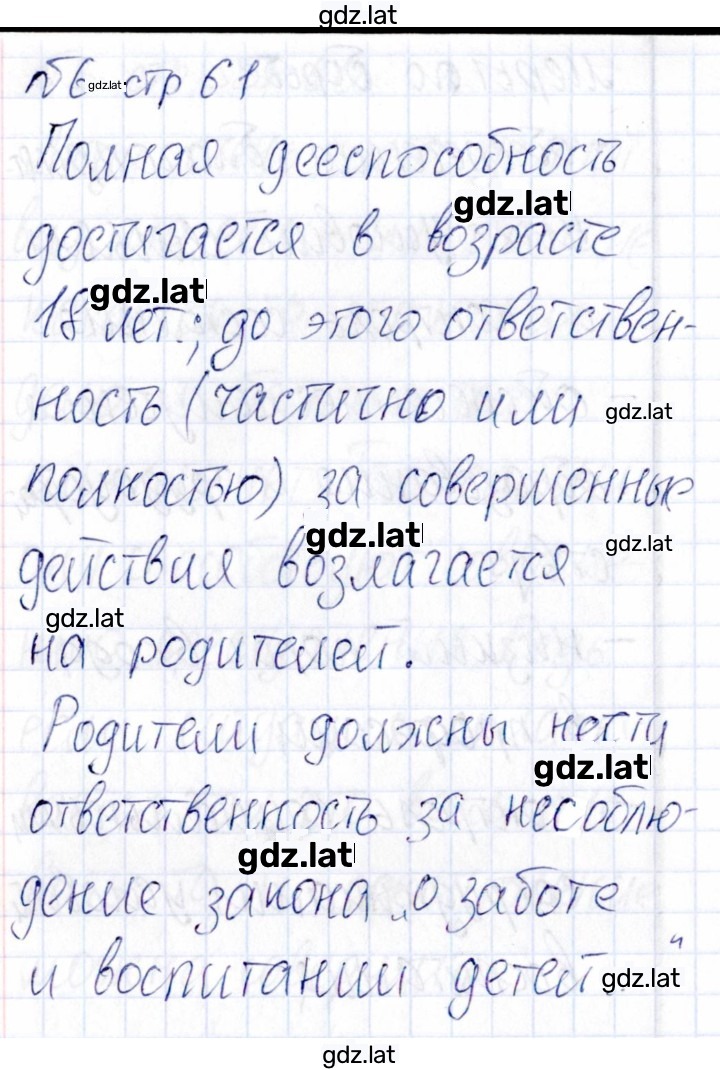 gdz.lat
№6 gdz.lat стр 61
Полная дееспособность
gdz.lat
достигается в возрасте
gdz.lat
18 лет.; до этого ответствен-
ность (частично или gdz.lat
полностью) за совершенные
gdz.lat gdz.lat
действия возлагается
gdz.lat
на родителей.
Родители должны нести
gdz.lat
ответственность за несоблю-
gdz.lat
дение закона „о заботе
и воспитании детей." gdz.lat
gdz.lat